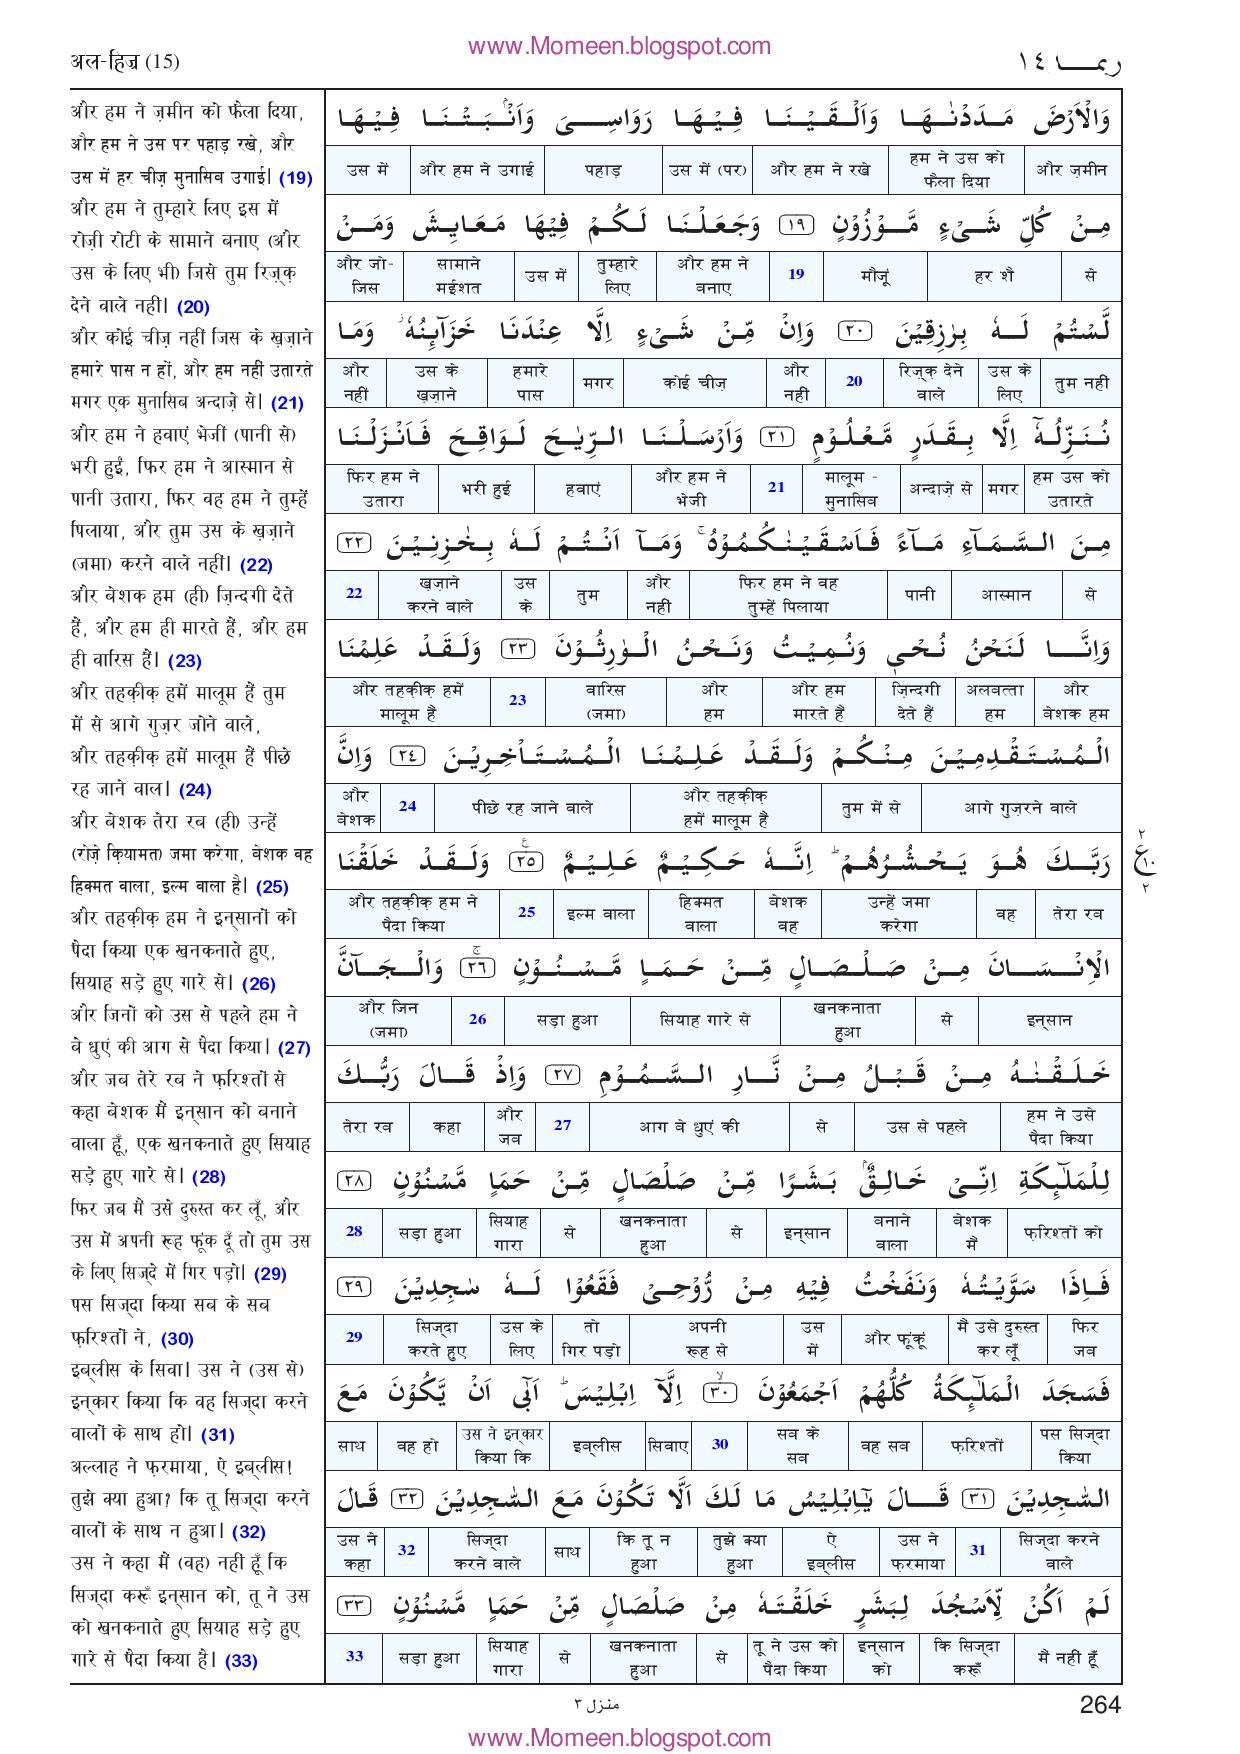 www.Momeen.blogspot.com
अल-हिज्र (15)
ربما ١٤
और हम ने ज़मीन को फैला दिया,
और हम ने उस पर पहाड़ रखे, और
उस में हर चीज़ मुनासिब उगाई। (19)
और हम ने तुम्हारे लिए इस में
रोज़ी रोटी के सामाने बनाए (और
उस के लिए भी) जिसे तुम रिज़्क़
देने वाले नहीं। (20)
और कोई चीज़ नहीं जिस के ख़ज़ाने
हमारे पास न हों, और हम नहीं उतारते
मगर एक मुनासिब अन्दाज़े से। (21)
और हम ने हवाएं भेजीं (पानी से)
भरी हुईं, फिर हम ने आस्मान से
पानी उतारा, फिर वह हम ने तुम्हें
पिलाया, और तुम उस के ख़ज़ाने
(जमा) करने वाले नहीं। (22)
और बेशक हम (ही) ज़िन्दगी देते
हैं, और हम ही मारते हैं, और हम
ही वारिस हैं। (23)
और तहक़ीक़ हमें मालूम हैं तुम
में से आगे गुज़र जोने वाले,
और तहक़ीक़ हमें मालूम हैं पीछे
रह जाने वाल। (24)
और बेशक तेरा रब (ही) उन्हें
(रोज़े क़ियामत) जमा करेगा, बेशक वह
हिक्मत वाला, इल्म वाला है। (25)
और तहक़ीक़ हम ने इन्सानों को
पैदा किया एक खनकनाते हुए,
सियाह सड़े हुए गारे से। (26)
और जिनों को उस से पहले हम ने
बे धुएं की आग से पैदा किया। (27)
और जब तेरे रब ने फ़रिश्तों से
कहा बेशक मैं इन्सान को बनाने
वाला हूँ, एक खनकनाते हुए सियाह
सड़े हुए गारे से। (28)
फिर जब मैं उसे दुरुस्त कर लूँ, और
उस में अपनी रूह फूंक दूँ तो तुम उस
के लिए सिज्दे में गिर पड़ो। (29)
पस सिज्दा किया सब के सब
फ़रिश्तों ने, (30)
इब्लीस के सिवा। उस ने (उस से)
इन्कार किया कि वह सिज्दा करने
वालों के साथ हो। (31)
अल्लाह ने फ़रमाया, ऐ इब्लीस!
तुझे क्या हुआ? कि तू सिज्दा करने
वालों के साथ न हुआ। (32)
उस ने कहा मैं (वह) नहीं हूँ कि
सिज्दा करूँ इन्सान को, तू ने उस
को खनकनाते हुए सियाह सड़े हुए
गारे से पैदा किया है। (33)
وَالْاَرْضَ مَدَدْنٰهَا وَاَلْقَيْنَا فِيْهَا رَوَاسِيَ وَاَنْۢبَتْنَا فِيْهَا
और ज़मीन | हम ने उस को फैला दिया | और हम ने रखे | उस में (पर) | पहाड़ | और हम ने उगाई | उस में
مِنْ كُلِّ شَيْءٍ مَّوْزُوْنٍ ١٩ وَجَعَلْنَا لَكُمْ فِيْهَا مَعَايِشَ وَمَنْ
से | हर शै | मौजूं | 19 | और हम ने बनाए | तुम्हारे लिए | उस में | सामाने मईशत | और जो- जिस
لَّسْتُمْ لَهٗ بِرٰزِقِيْنَ ٢٠ وَاِنْ مِّنْ شَيْءٍ اِلَّا عِنْدَنَا خَزَآئِنُهٗ ؗ وَمَا
तुम नहीं | उस के लिए | रिज़्क़ देने वाले | 20 | और नहीं | कोई चीज़ | मगर | हमारे पास | उस के ख़ज़ाने | और नहीं
نُنَزِّلُهٗٓ اِلَّا بِقَدَرٍ مَّعْلُوْمٍ ٢١ وَاَرْسَلْنَا الرِّيٰحَ لَوَاقِحَ فَاَنْزَلْنَا
हम उस को उतारते | मगर | अन्दाज़े से | मालूम - मुनासिब | 21 | और हम ने भेजी | हवाएं | भरी हुई | फिर हम ने उतारा
مِنَ السَّمَآءِ مَآءً فَاَسْقَيْنٰكُمُوْهُ ۚ وَمَآ اَنْتُمْ لَهٗ بِخٰزِنِيْنَ ٢٢
से | आस्मान | पानी | फिर हम ने वह तुम्हें पिलाया | और नहीं | तुम | उस के | ख़ज़ाने करने वाले | 22
وَاِنَّا لَنَحْنُ نُحْيٖ وَنُمِيْتُ وَنَحْنُ الْوٰرِثُوْنَ ٢٣ وَلَقَدْ عَلِمْنَا
और बेशक हम | अलबत्ता हम | ज़िन्दगी देते हैं | और हम मारते हैं | और हम | वारिस (जमा) | 23 | और तहक़ीक़ हमें मालूम हैं
الْمُسْتَقْدِمِيْنَ مِنْكُمْ وَلَقَدْ عَلِمْنَا الْمُسْتَاْخِرِيْنَ ٢٤ وَاِنَّ
आगे गुज़रने वाले | तुम में से | और तहक़ीक़ हमें मालूम हैं | पीछे रह जाने वाले | 24 | और बेशक
رَبَّكَ هُوَ يَحْشُرُهُمْ ؕ اِنَّهٗ حَكِيْمٌ عَلِيْمٌ ٢٥ ع وَلَقَدْ خَلَقْنَا
तेरा रब | वह | उन्हें जमा करेगा | बेशक वह | हिक्मत वाला | इल्म वाला | 25 | और तहक़ीक़ हम ने पैदा किया
٢ ع ١٠ ٢
الْاِنْسَانَ مِنْ صَلْصَالٍ مِّنْ حَمَاٍ مَّسْنُوْنٍ ۚ ٢٦ وَالْجَآنَّ
इन्सान | से | खनकनाता हुआ | सियाह गारे से | सड़ा हुआ | 26 | और जिन (जमा)
خَلَقْنٰهُ مِنْ قَبْلُ مِنْ نَّارِ السَّمُوْمِ ٢٧ وَاِذْ قَالَ رَبُّكَ
हम ने उसे पैदा किया | उस से पहले | से | आग बे धुएं की | 27 | और जब | कहा | तेरा रब
لِلْمَلٰٓئِكَةِ اِنِّيْ خَالِقٌۢ بَشَرًا مِّنْ صَلْصَالٍ مِّنْ حَمَاٍ مَّسْنُوْنٍ ٢٨
फ़रिश्तों को | बेशक मैं | बनाने वाला | इन्सान | से | खनकनाता हुआ | से | सियाह गारा | सड़ा हुआ | 28
فَاِذَا سَوَّيْتُهٗ وَنَفَخْتُ فِيْهِ مِنْ رُّوْحِيْ فَقَعُوْا لَهٗ سٰجِدِيْنَ ٢٩
फिर जब | मैं उसे दुरुस्त कर लूँ | और फूंकूं | उस में | अपनी रूह से | तो गिर पड़ो | उस के लिए | सिज्दा करते हुए | 29
فَسَجَدَ الْمَلٰٓئِكَةُ كُلُّهُمْ اَجْمَعُوْنَ ۙ ٣٠ اِلَّآ اِبْلِيْسَ ؕ اَبٰٓى اَنْ يَّكُوْنَ مَعَ
पस सिज्दा किया | फ़रिश्तों | वह सब | सब के सब | 30 | सिवाए | इब्लीस | उस ने इन्कार किया कि | वह हो | साथ
السّٰجِدِيْنَ ٣١ قَالَ يٰٓاِبْلِيْسُ مَا لَكَ اَلَّا تَكُوْنَ مَعَ السّٰجِدِيْنَ ٣٢ قَالَ
सिज्दा करने वाले | 31 | उस ने फ़रमाया | ऐ इब्लीस | तुझे क्या हुआ | कि तू न हुआ | साथ | सिज्दा करने वाले | 32 | उस ने कहा
لَمْ اَكُنْ لِّاَسْجُدَ لِبَشَرٍ خَلَقْتَهٗ مِنْ صَلْصَالٍ مِّنْ حَمَاٍ مَّسْنُوْنٍ ٣٣
मैं नहीं हूँ | कि सिज्दा करूँ | इन्सान को | तू ने उस को पैदा किया | से | खनकनाता हुआ | से | सियाह गारा | सड़ा हुआ | 33
منزل ٣
264
www.Momeen.blogspot.com